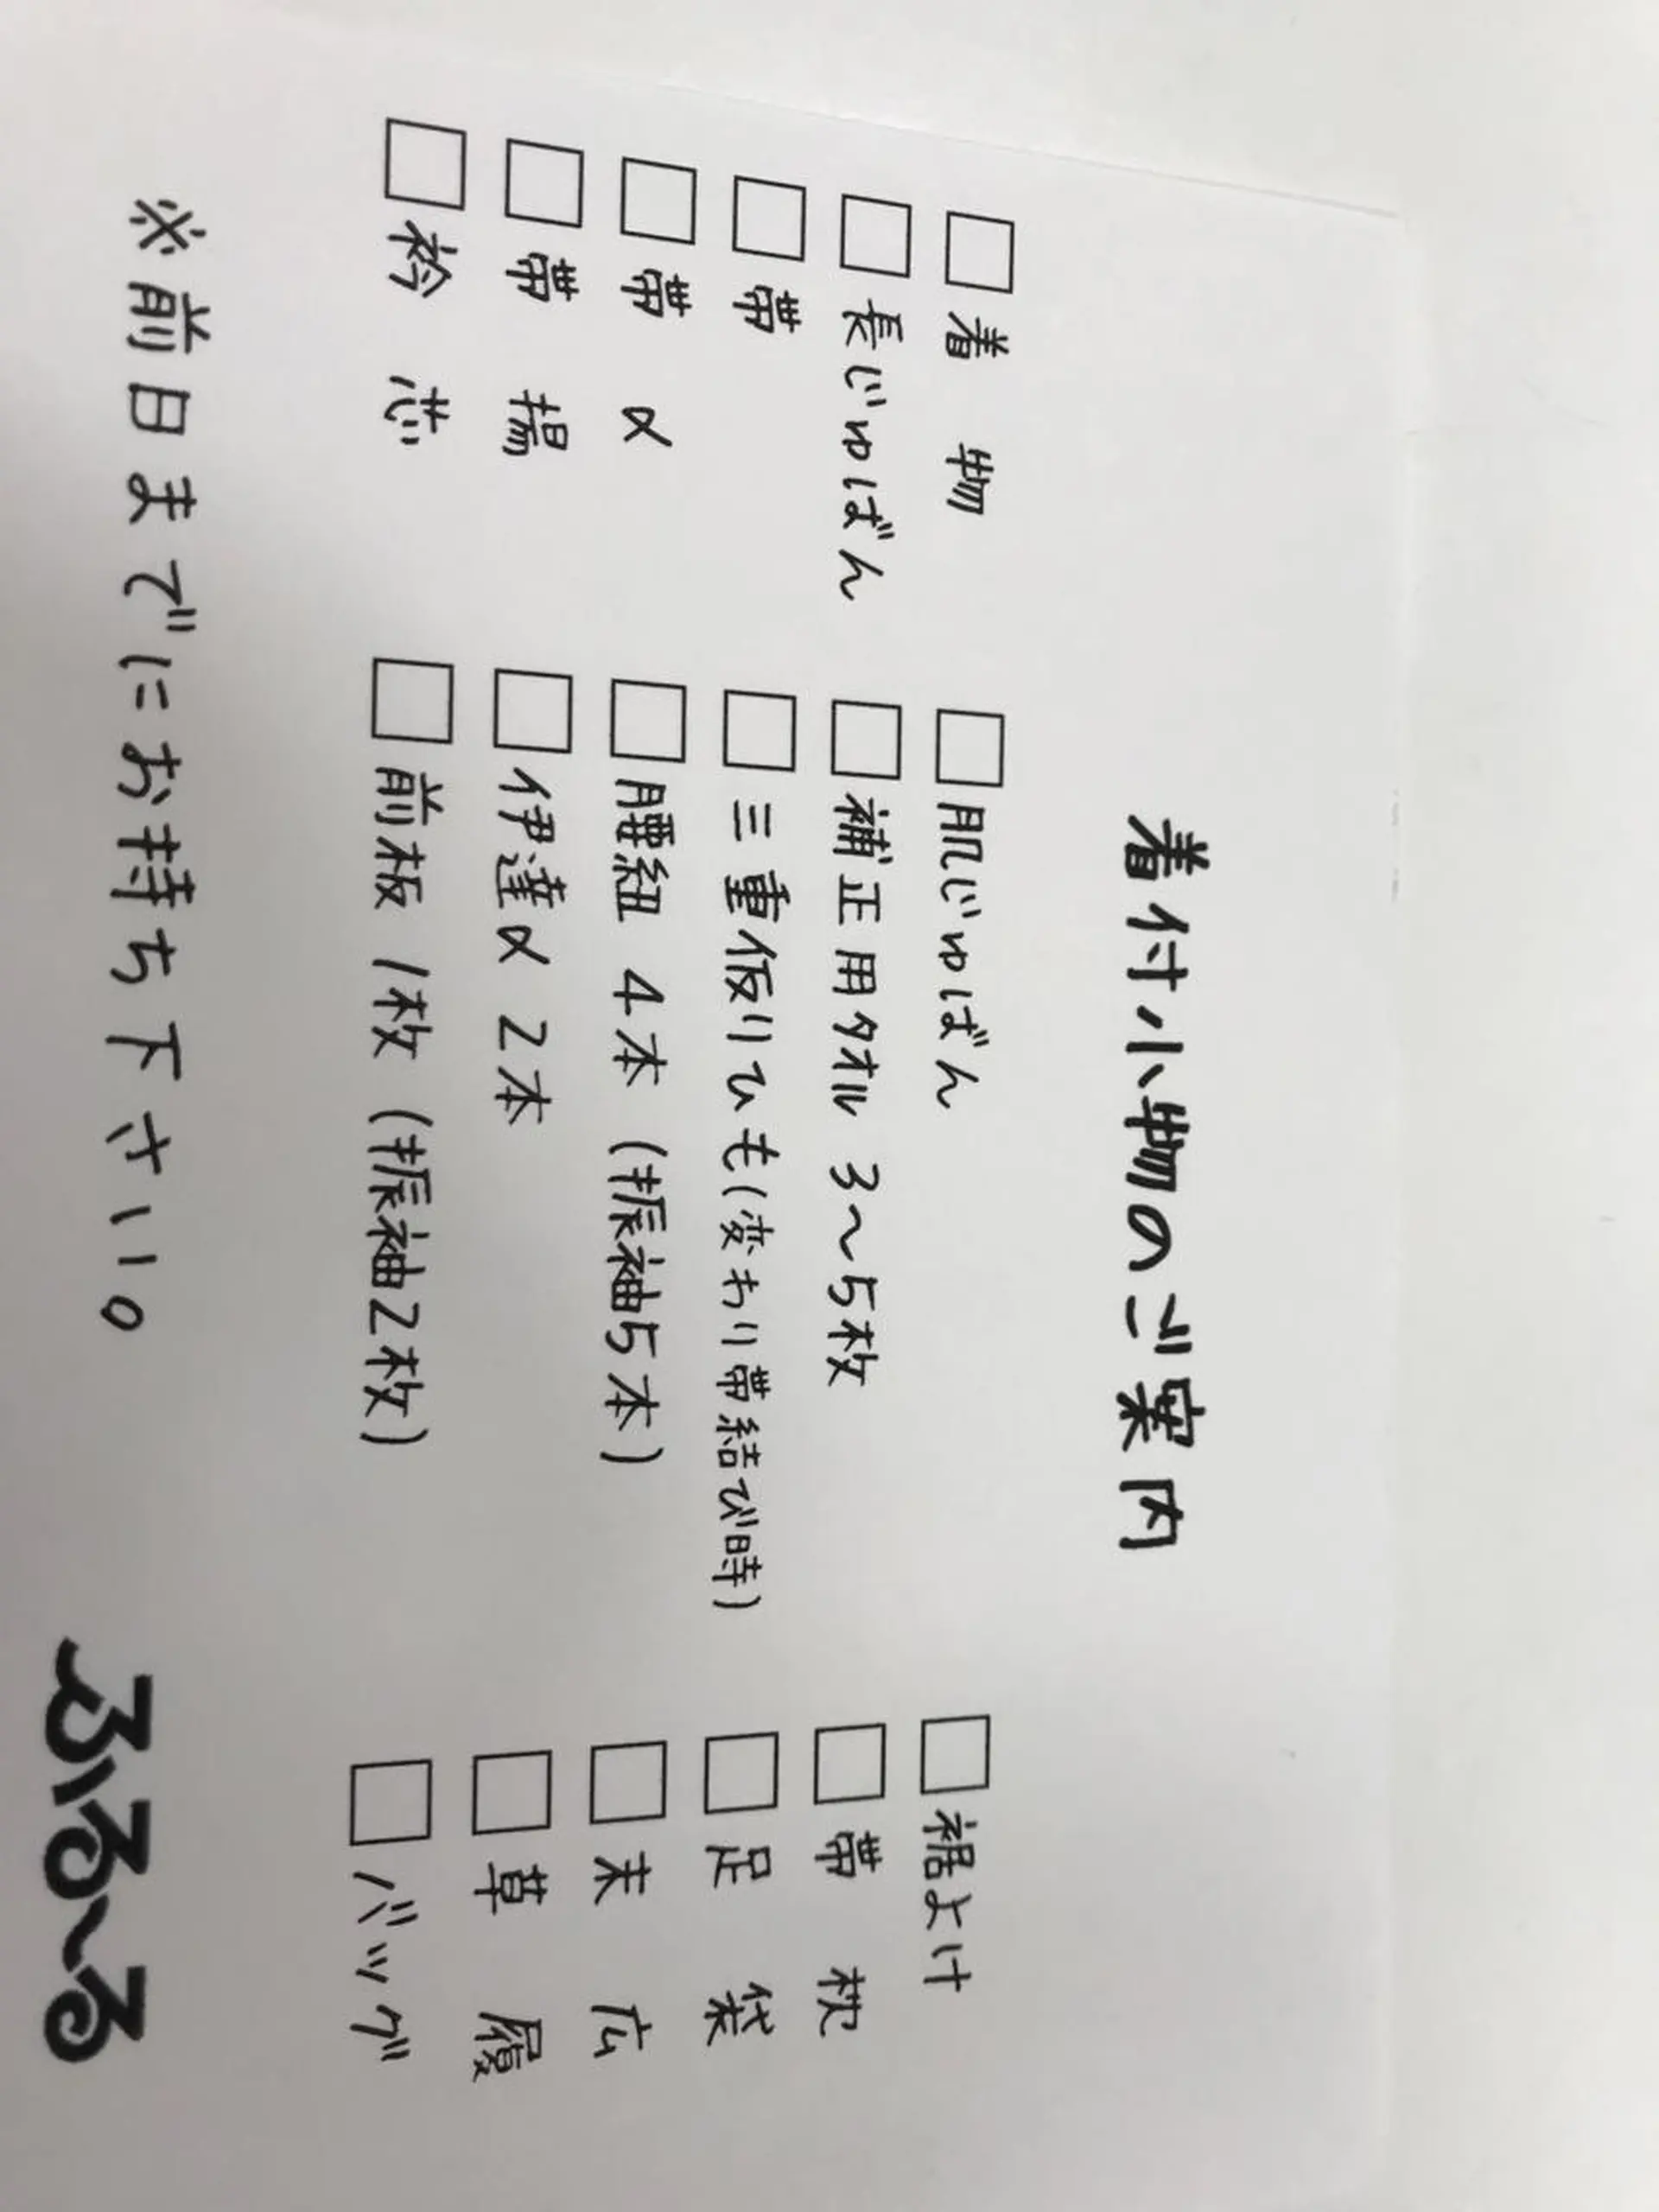 着付小物のご案内
□ 着物 □ 肌じゅばん □ 裾よけ
□ 長じゅばん □ 補正用タオル 3〜5枚 □ 帯枕
□ 帯 □ 三重仮りひも(変わり帯結び時) □ 足袋
□ 帯〆 □ 腰紐 4本 (振袖5本) □ 末広
□ 帯揚 □ 伊達〆 2本 □ 草履
□ 衿芯 □ 前板 1枚 (振袖2枚) □ バッグ
※前日までにお持ち下さい。
ふる〜る